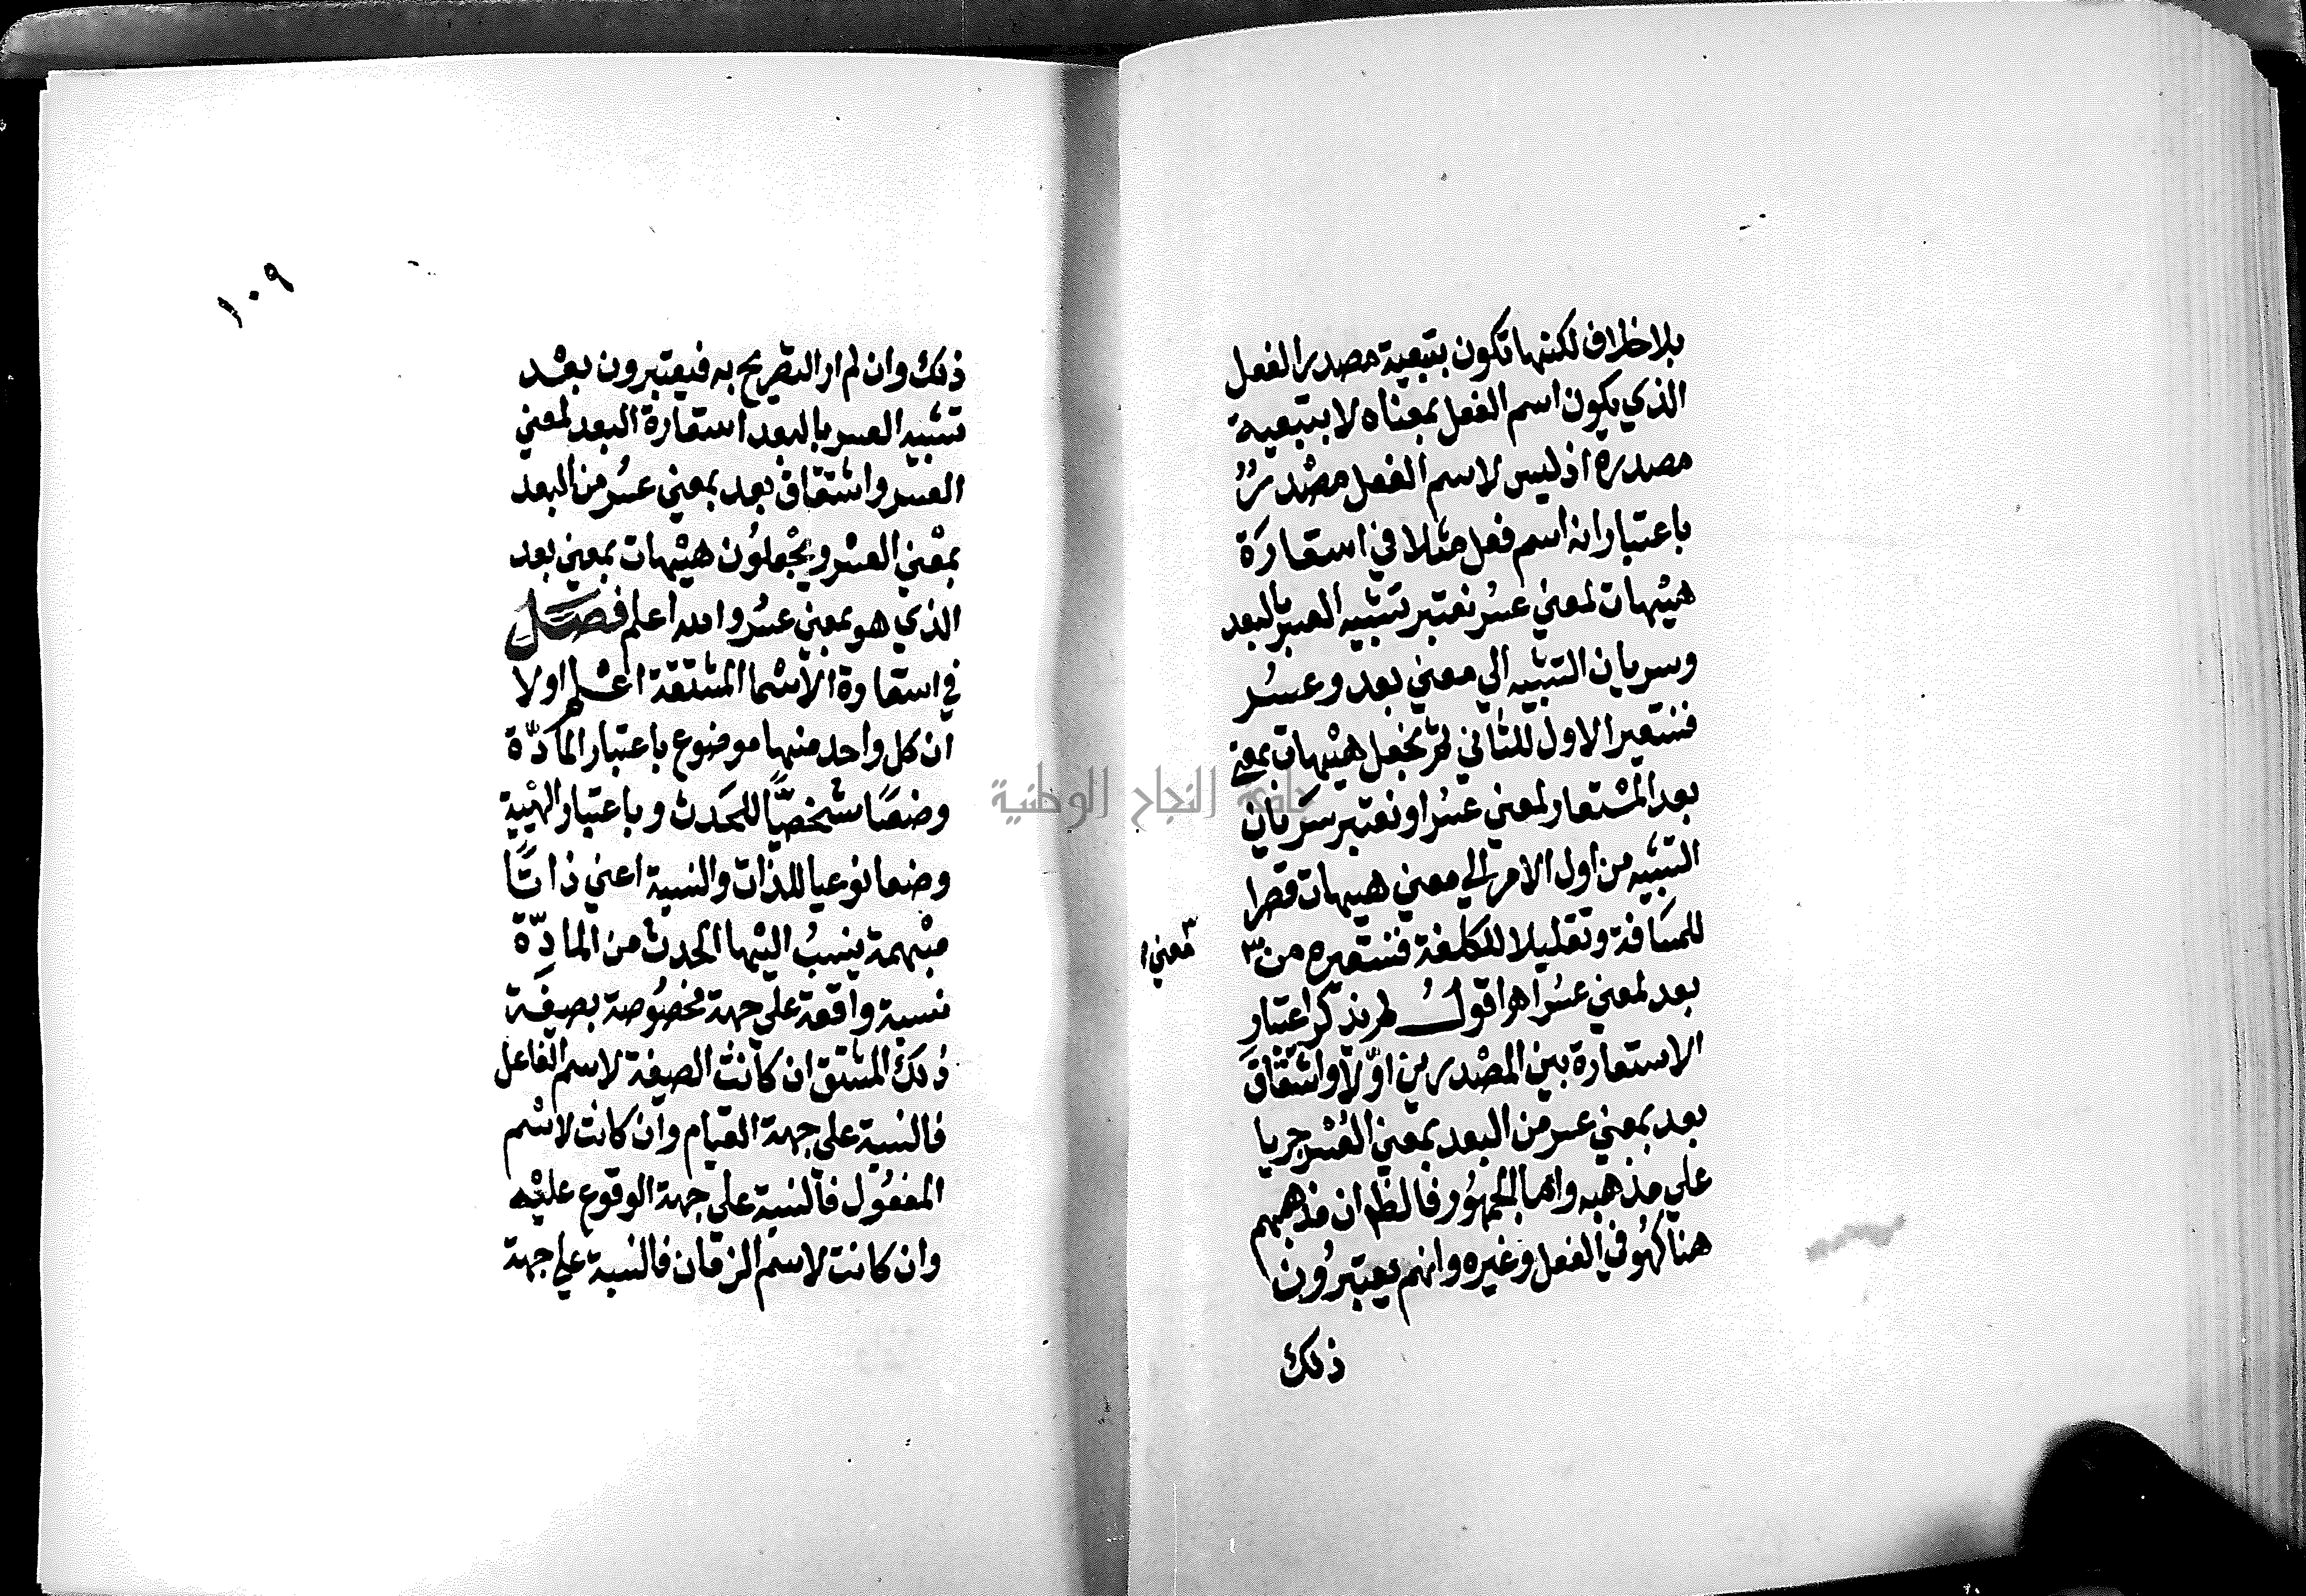 بلا خلاف لكنها تكون بتبعية مصدر الفعل
الذي يكون اسم الفعل بمعناه لا بتبعية
مصدره اذ ليس لاسم الفعل مصْدرٌ
باعتبار انه اسم فعل مثلا في استعارَة
هيْهات لمعني عسُر نعتبر تشبيه العسر بالبعد
وسريان التشبيه الي معني بعد وعسُر
فنستعير الاول للثاني ثم نجعل هيْهات بمعني
بعد المسْتعار لمعني عسُر او نعتبر سرَيان
التشبيه من اول الامر الي معني هيهات قصرا
للمسَافة وتقليلا للكلفة فنستعيره من ٣
٣ معني
بعد لمعني عسُر اهـ اقول لم يذكر اعتبار
الاستعارة بين المصْدرين اوّلا واشتقاق
بعد بمعني عسر من البعد بمعني العُسْر جريا
علي مذهبه واما الجمهُور فالظ ان مذهبهم
هنا كهُو في الفعل وغيره وانهم يعتبرُون
ذلك
١٠٩
ذلك وان لم ار التصريح به فيعتبرون بعْد
تشبيه العسر بالبعد استعارة البعد لمعني
العسر واشتقاق بعد بمعني عسُر من البعد
بمعْني العسْر ويجْعلوُن هيْهات بمعني بعد
الذي هو بمعني عسُر والله اعلم فصَل
في استعارة الاسْما المشتقة اعْلم اولا
ان كل واحد منها موضوع باعتبار المادّة
وضعًا شخصيًّا للحَدث وباعتبار الهيْية
وضعا نوعيا للذات والنسبة اعني ذاتًا
مبْهمة ينسبُ اليْها الحدث من المادّة
نسبة واقعة علي جهة مخصُوصة بصيغَة
ذلك المشتق ان كانت الصيغة لاسم الفاعل
فالنسبة علي جهة القيام وان كانت لاسْم
المفعُول فالنسبة علي جهة الوقوع عليْه
وان كانت لاسم الزمان فالنسبة علي جهة
جامعة النجاح الوطنية